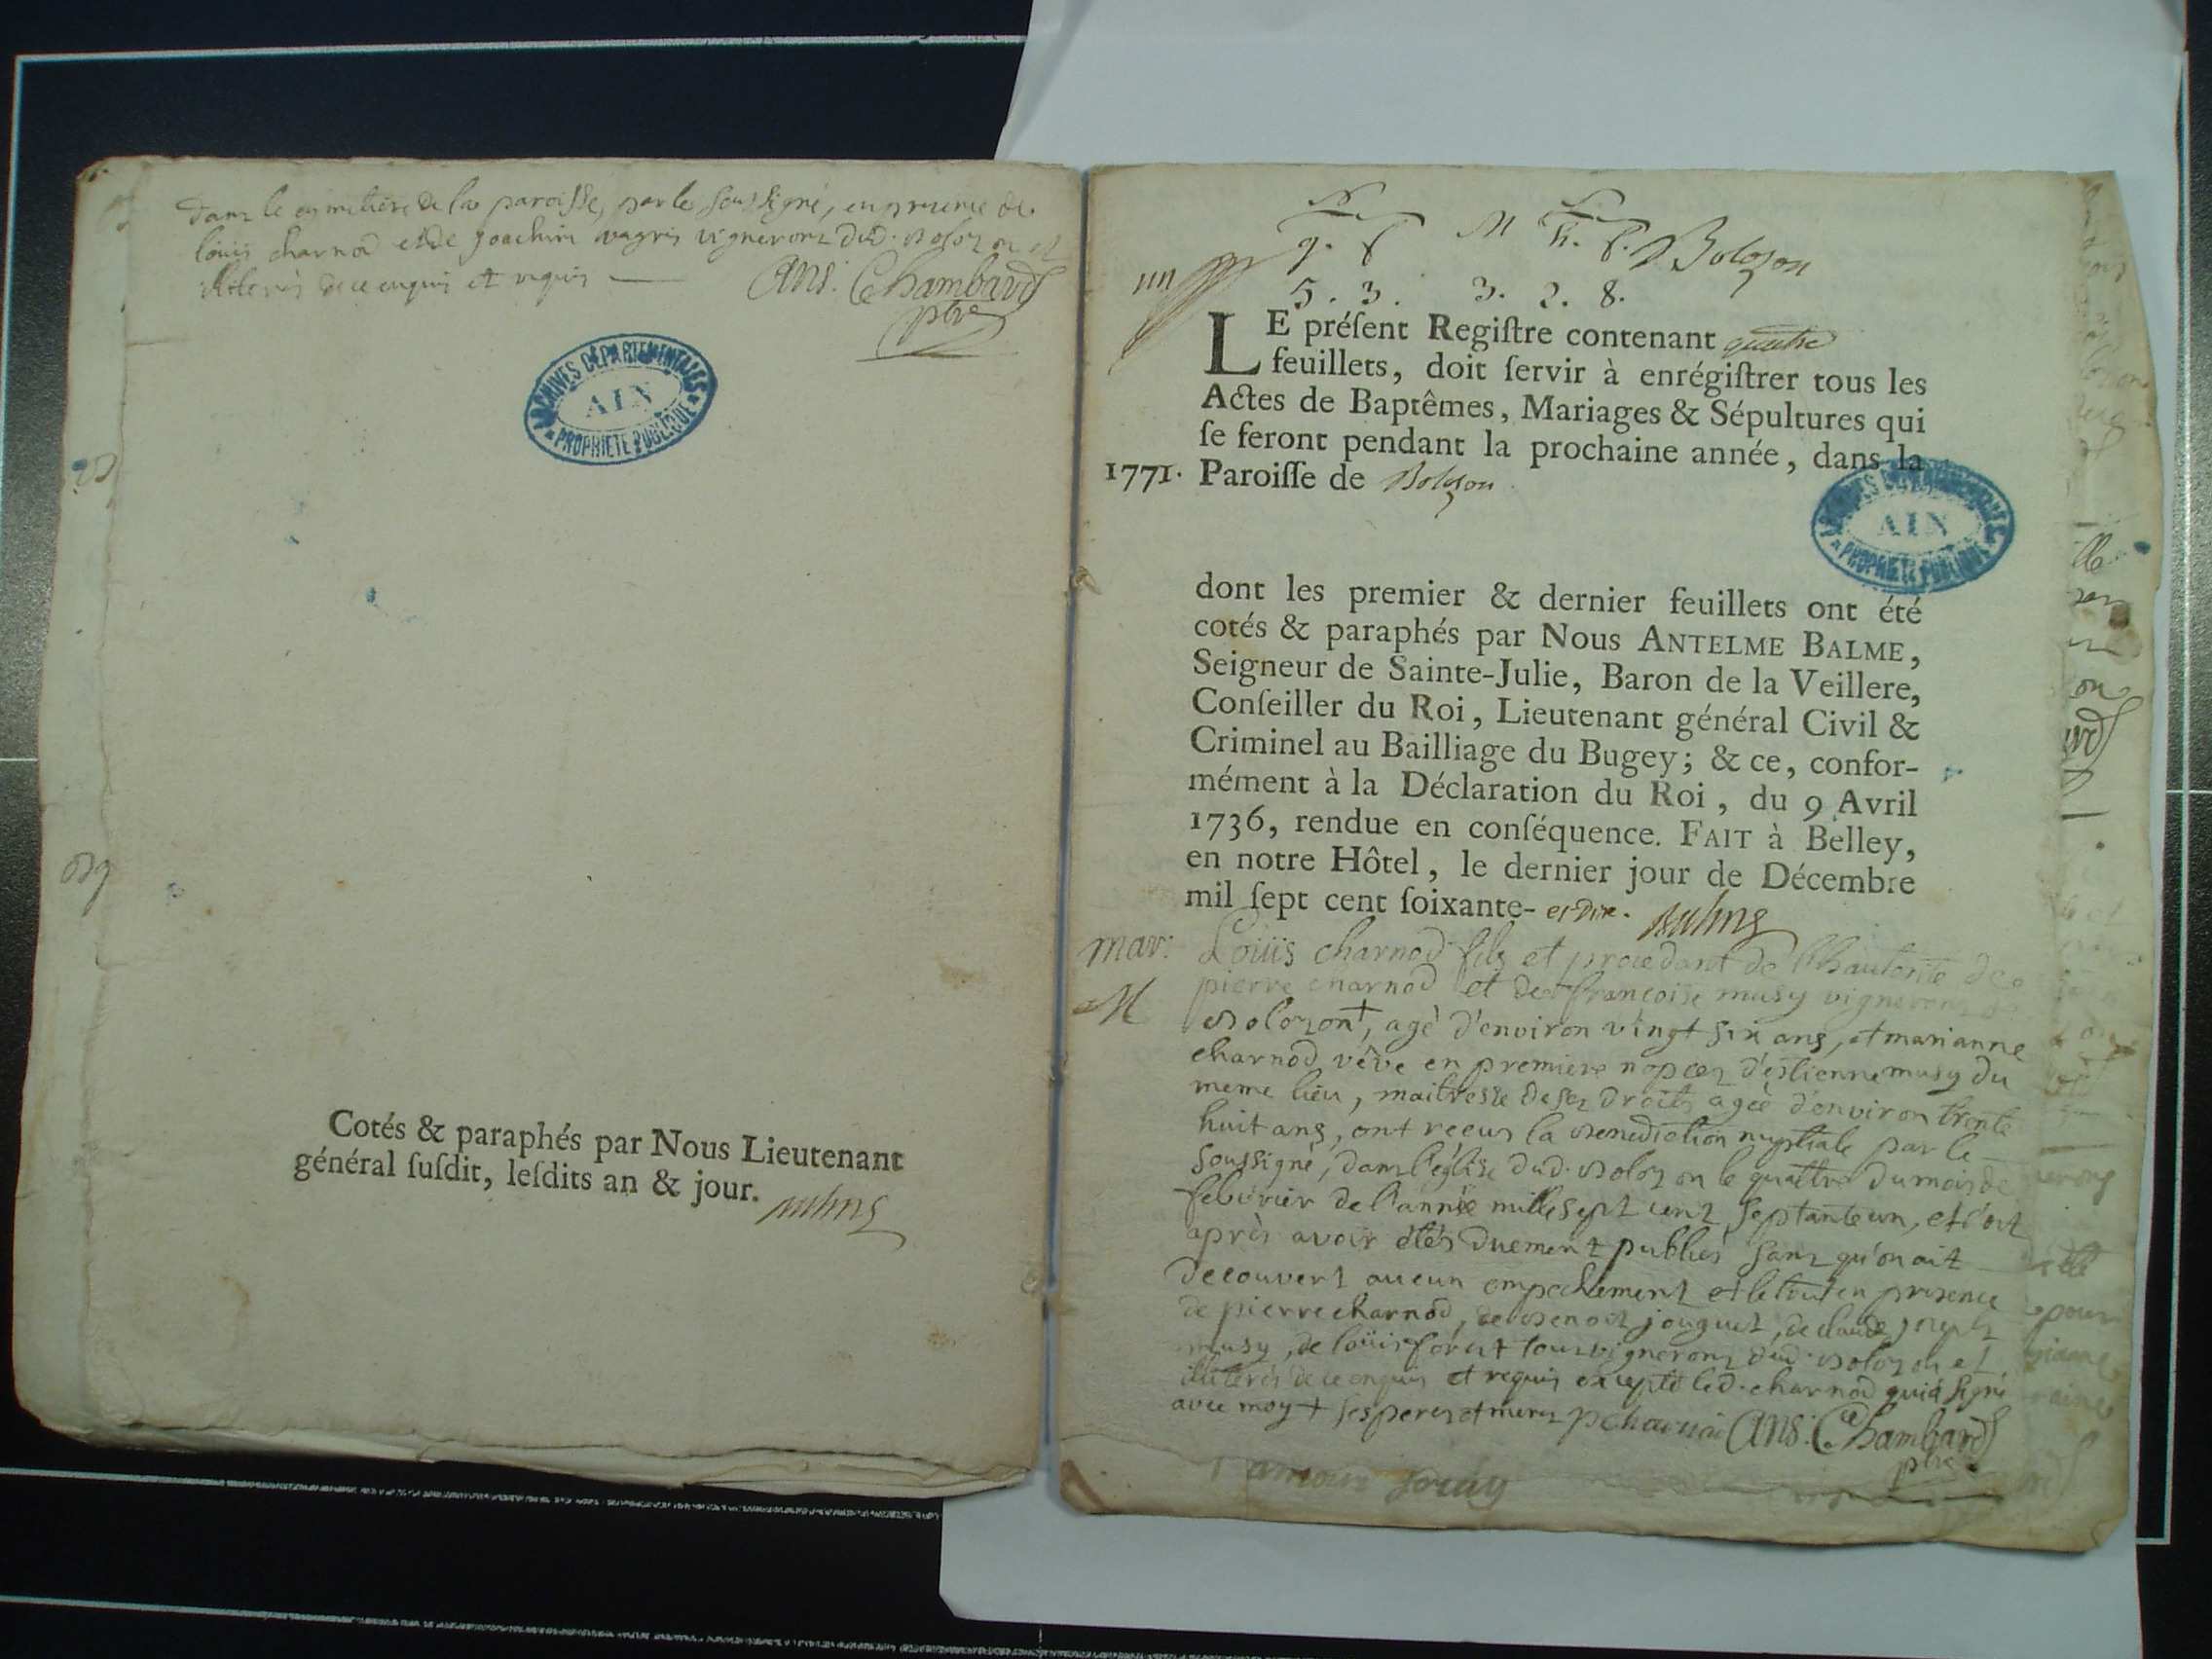 dans le cymetiere de la paroisse, par le soussigné, en presence de
louis charnod et de joachim vignerons dud. bolozon et
illiterés de ce enquis et requis
ans. Chambard
ptre
ARCHIVES DÉPARTEMENTALES
AIN
PROPRIÉTÉ PUBLIQUE
Cotés & paraphés par Nous Lieutenant
général ſuſdit, leſdits an & jour.
M Bolozon
5. 3. 3. 2. 8.
LE préſent Regiſtre contenant quatre
feuillets, doit ſervir à enrégiſtrer tous les
Actes de Baptêmes, Mariages & Sépultures qui
ſe feront pendant la prochaine année, dans la
1771. Paroiſſe de Bolozon
ARCHIVES DÉPARTEMENTALES
AIN
PROPRIÉTÉ PUBLIQUE
dont les premier & dernier feuillets ont été
cotés & paraphés par Nous ANTELME BALME,
Seigneur de Sainte-Julie, Baron de la Veillere,
Conſeiller du Roi, Lieutenant général Civil &
Criminel au Bailliage du Bugey; & ce, confor-
mément à la Déclaration du Roi, du 9 Avril
1736, rendue en conſéquence. FAIT à Belley,
en notre Hôtel, le dernier jour de Décembre
mil ſept cent ſoixante- et dix.
mar. Loüis charnod fils et procedant de l'hautorité de
M pierre charnod et de françoise musy vignerons
bolozon +, agé d'environ vingt six ans, et marianne
charnod vêve en premiere nopces d'estienne musy du
meme lieu, maitresse de ses droits agée d'environ trente
huit ans, ont reçus la benediction nuptiale par le
soussigné, dans l'église dud. bolozon le quattre du mois de
febvrier de l'année mille sept cent septante un, et c'est
après avoir étés duement publiés sans qu'on ait
decouvert aucun empechement et le tout en presence
de pierre charnod, de benoit jouguet, de claude joseph
musy, de loüis foret tous vignerons dud. bolozon et
illiterés de ce enquis et requis excepté led. charnod qui a signé
avec moy + ses peres et meres p charnod ans. Chambard
ptre